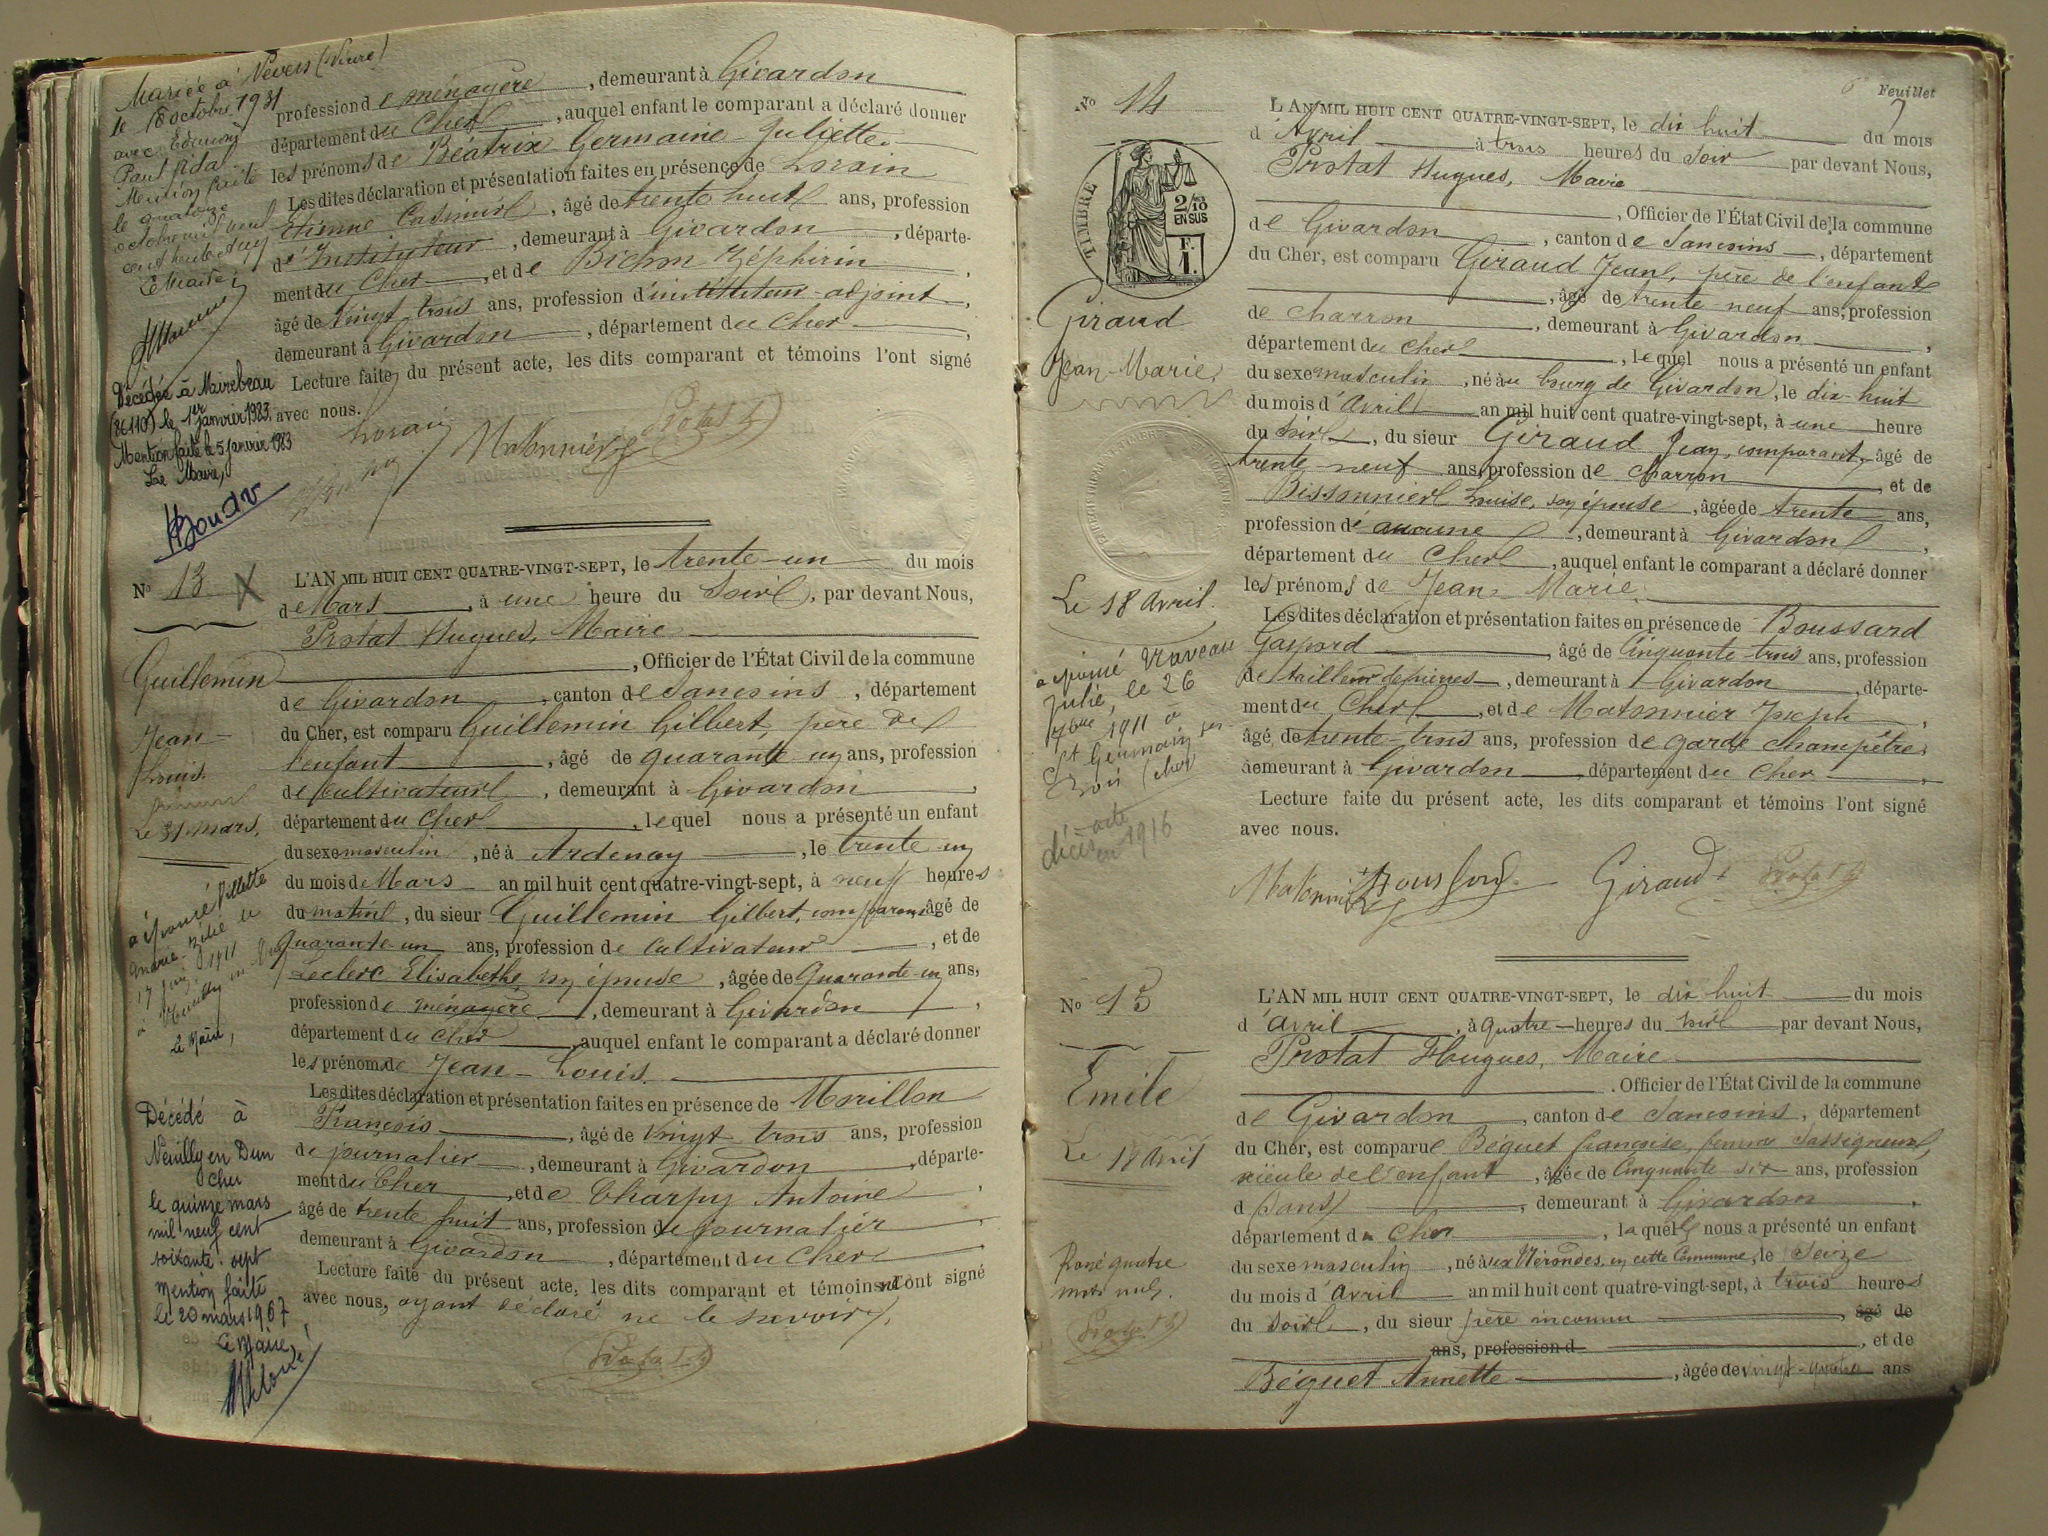 Mariée à Nevers (Nièvre)
le 18 octobre 1931
avec Edmond
Paul Pidal
Mention faite
le quatorze
octobre mil neuf
cent trente et un
Le Maire,
profession de ménagère, demeurant à Givardon
département du Cher, auquel enfant le comparant a déclaré donner
les prénoms de Béatrix Germaine Juliette.
Lesdites déclaration et présentation faites en présence de Lorain
Etienne Casimir, âgé de trente huit ans, profession
d'Instituteur, demeurant à Givardon, départe-
ment du Cher, et de Bichon Zéphirin,
âgé de vingt trois ans, profession d'instituteur-adjoint,
demeurant à Givardon, département du Cher,
Lecture faite du présent acte, les dits comparant et témoins l'ont signé
avec nous.
Lorain
Matonnier
Protat h
Décédée à Mirebeau
(86110) le 1er janvier 1983
Mention faite le 5 janvier 1983
Le Maire,
No 13 X
Guillemin
Jean-
Louis.
Le 31 mars.
a épousé Villette
Marie-Zélie le
17 1911
à Neuilly en Dun
Le Maire,
Décédé à
Neuilly en Dun
Cher
le quinze mars
mil neuf cent
soixante.sept
mention faite
le 20 mars 1967
Le Maire,
L'AN MIL HUIT CENT QUATRE-VINGT-SEPT, le trente-un du mois
de Mars, à une heure du Soir, par devant Nous,
Protat Hugues, Maire
, Officier de l'État Civil de la commune
de Givardon, canton de Sancoins, département
du Cher, est comparu Guillemin Gilbert, père de
l'enfant, âgé de quarante un ans, profession
de cultivateur, demeurant à Givardon,
département du Cher, lequel nous a présenté un enfant
du sexe masculin, né à Ardenay, le trente un
du mois de Mars an mil huit cent quatre-vingt-sept, à neuf heures
du matin, du sieur Guillemin Gilbert, comparant âgé de
quarante-un ans, profession de cultivateur, et de
Leclerc Elisabethe, son épouse, âgée de Quarante-un ans,
profession de ménagère, demeurant à Givardon,
département du Cher, auquel enfant le comparant a déclaré donner
les prénoms de Jean-Louis.
Lesdites déclaration et présentation faites en présence de Morillon
François, âgé de vingt trois ans, profession
de journalier, demeurant à Givardon, départe-
ment du Cher, et de Charpy Antoine,
âgé de trente huit ans, profession de journalier
demeurant à Givardon, département du Cher
Lecture faite du présent acte, les dits comparant et témoins n'ont signé
avec nous, ayant déclaré ne le savoir.
Protat h
6e Feuillet
7
No 14
TIMBRE
2/10 EN SUS
F.
1.
Giraud
Jean-Marie.
Le 18 Avril.
a épousé Naveau
Julie, le 26
7bre 1911 à
St Germain des
Bois (Cher)
acte
décès en 1916
L'AN MIL HUIT CENT QUATRE-VINGT-SEPT, le dix huit du mois
d'Avril à trois heures du Soir par devant Nous,
Protat Hugues, Maire
, Officier de l'État Civil de la commune
de Givardon, canton de Sancoins, département
du Cher, est comparu Giraud Jean, père de l'enfant
, âgé de trente-neuf ans, profession
de charron, demeurant à Givardon,
département du Cher, lequel nous a présenté un enfant
du sexe masculin, né au bourg de Givardon, le dix-huit
du mois d'Avril an mil huit cent quatre-vingt-sept, à une heure
du soir, du sieur Giraud Jean, comparant, âgé de
trente neuf ans, profession de charron, et de
Bissonnier Louise, son épouse, âgée de trente ans,
profession d'aucune, demeurant à Givardon,
département du Cher, auquel enfant le comparant a déclaré donner
les prénoms de Jean-Marie.
Lesdites déclaration et présentation faites en présence de Boussard
Gaspard, âgé de Cinquante-trois ans, profession
de tailleur de pierres, demeurant à Givardon, départe-
ment du Cher, et de Matonnier Joseph,
âgé de trente-trois ans, profession de garde champêtre,
demeurant à Givardon, département du Cher,
Lecture faite du présent acte, les dits comparant et témoins l'ont signé
avec nous.
Matonnier Boussard Giraud Protat h
No 15
Emile
Le 18 Avril
Rayé quatre
mots nuls.
Protat h
L'AN MIL HUIT CENT QUATRE-VINGT-SEPT, le dix huit du mois
d'Avril, à quatre heures du soir par devant Nous,
Protat Hugues, Maire
, Officier de l'État Civil de la commune
de Givardon, canton de Sancoins, département
du Cher, est comparue Béguet françoise, femme Sassigneux,
aïeule de l'enfant, âgée de Cinquante six ans, profession
d sans, demeurant à Givardon,
département du Cher, laquelle nous a présenté un enfant
du sexe masculin, né aux Nérondes, en cette Commune, le Seize
du mois d'Avril an mil huit cent quatre-vingt-sept, à trois heures
du soir, du sieur père inconnu, âgé de
ans, profession d, et de
Béguet Annette, âgée de vingt-quatre ans